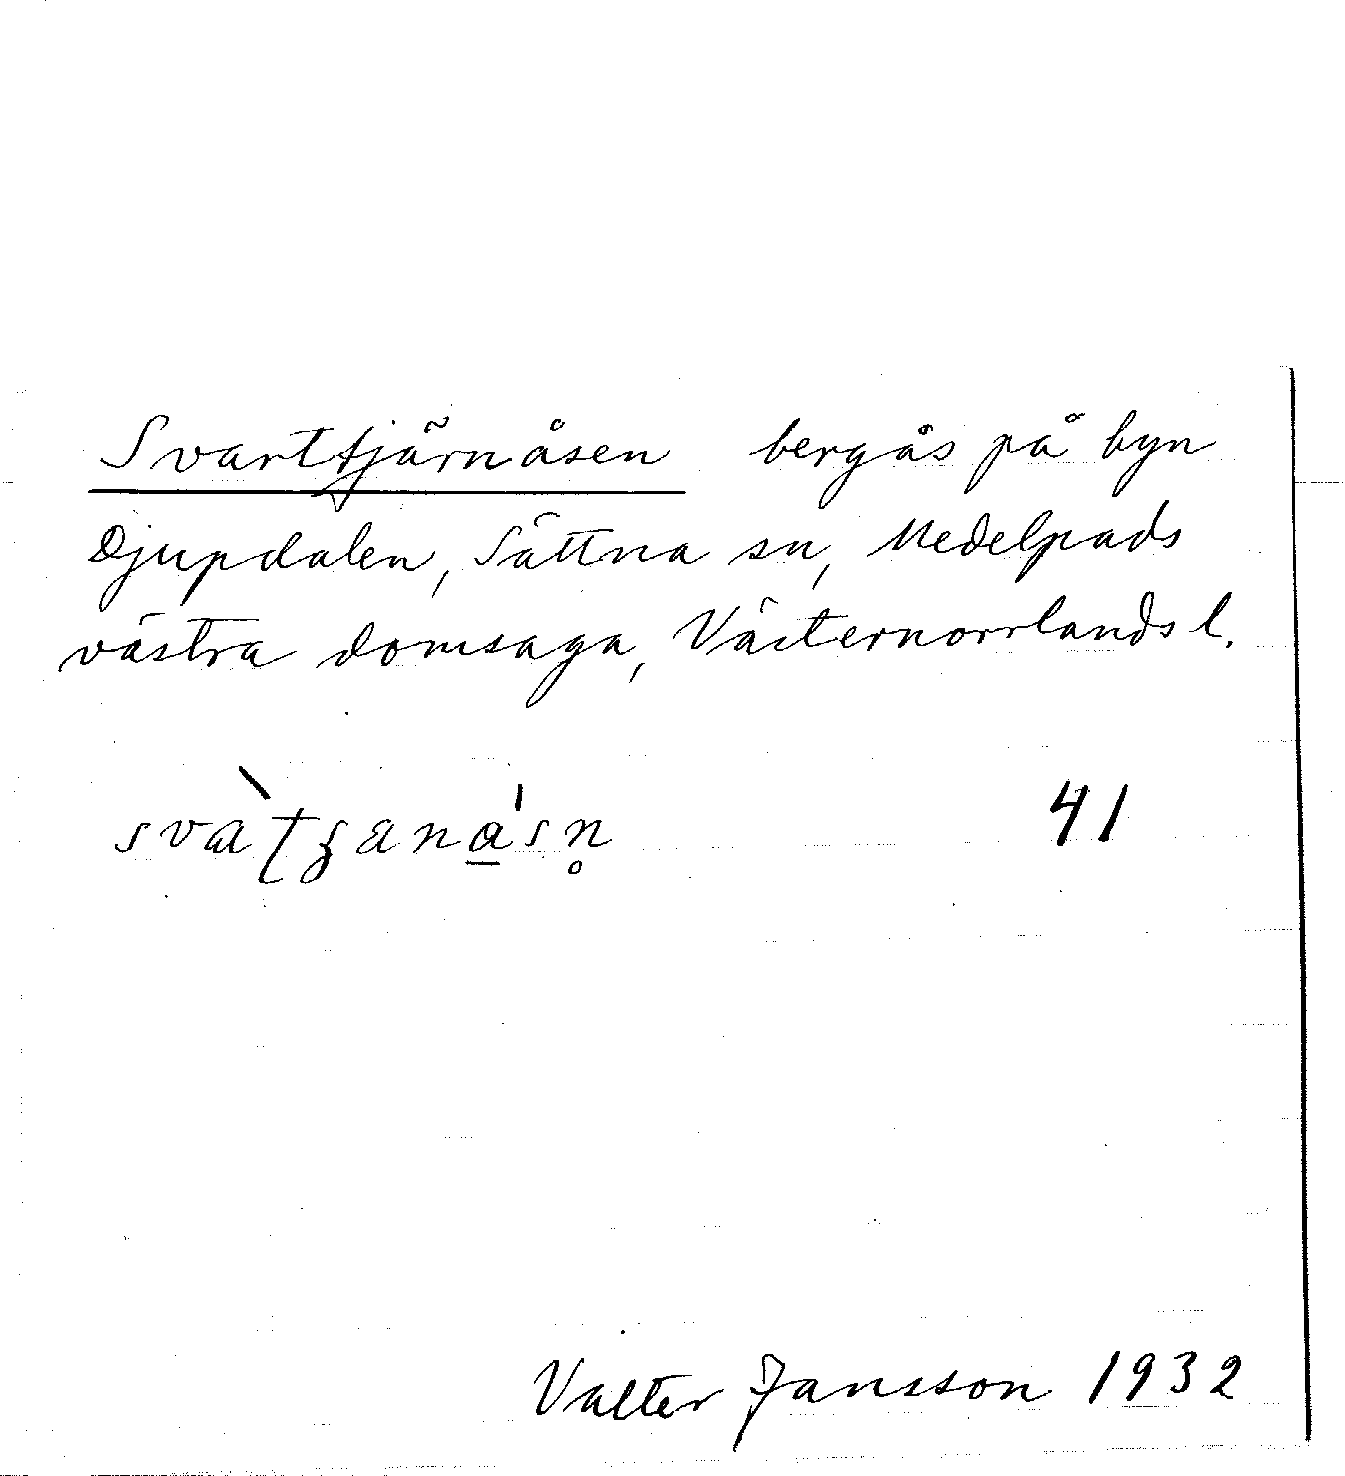 Svarttjärnåsen bergås på byn
Djupdalen, Sättna sn, Medelpads
västra domsaga, Västernorrlands l.
41
Valter Jansson 1932